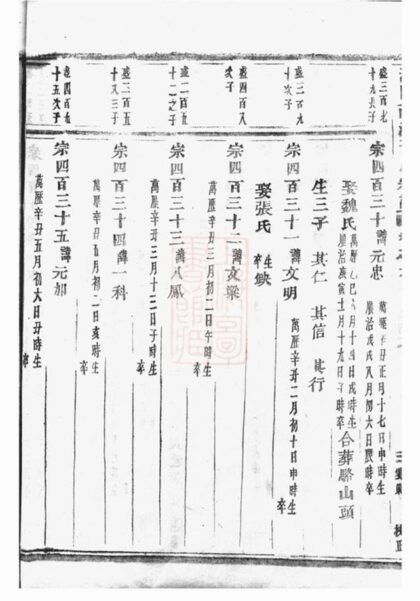 盛三百九
十九長子
宗四百三十諱元忠
萬曆辛丑正月十七日申時生
順治戊戌八月初六日辰時卒
娶魏氏
萬曆乙巳六月十四日戌時生
順治庚寅十二月十九日子時卒
合葬駱山頭
生三子 其仁 其信 其行
盛三百九
十六子
宗四百三十一諱文明
萬曆辛丑二月初十日申時生
卒
娶張氏
生卒缺
盛四百八
次子
宗四百三十二諱文梁
萬曆辛丑三月初二日午時生
卒
盛四百
十二之子
宗四百三十三諱八鳳
萬曆辛丑三月十二日子時生
卒
盛四百
十八三子
宗四百三十四諱一科
萬曆辛丑五月初二日亥時生
卒
盛四百九
十五次子
宗四百三十五諱元加
萬曆辛丑五月初六日丑時生
卒